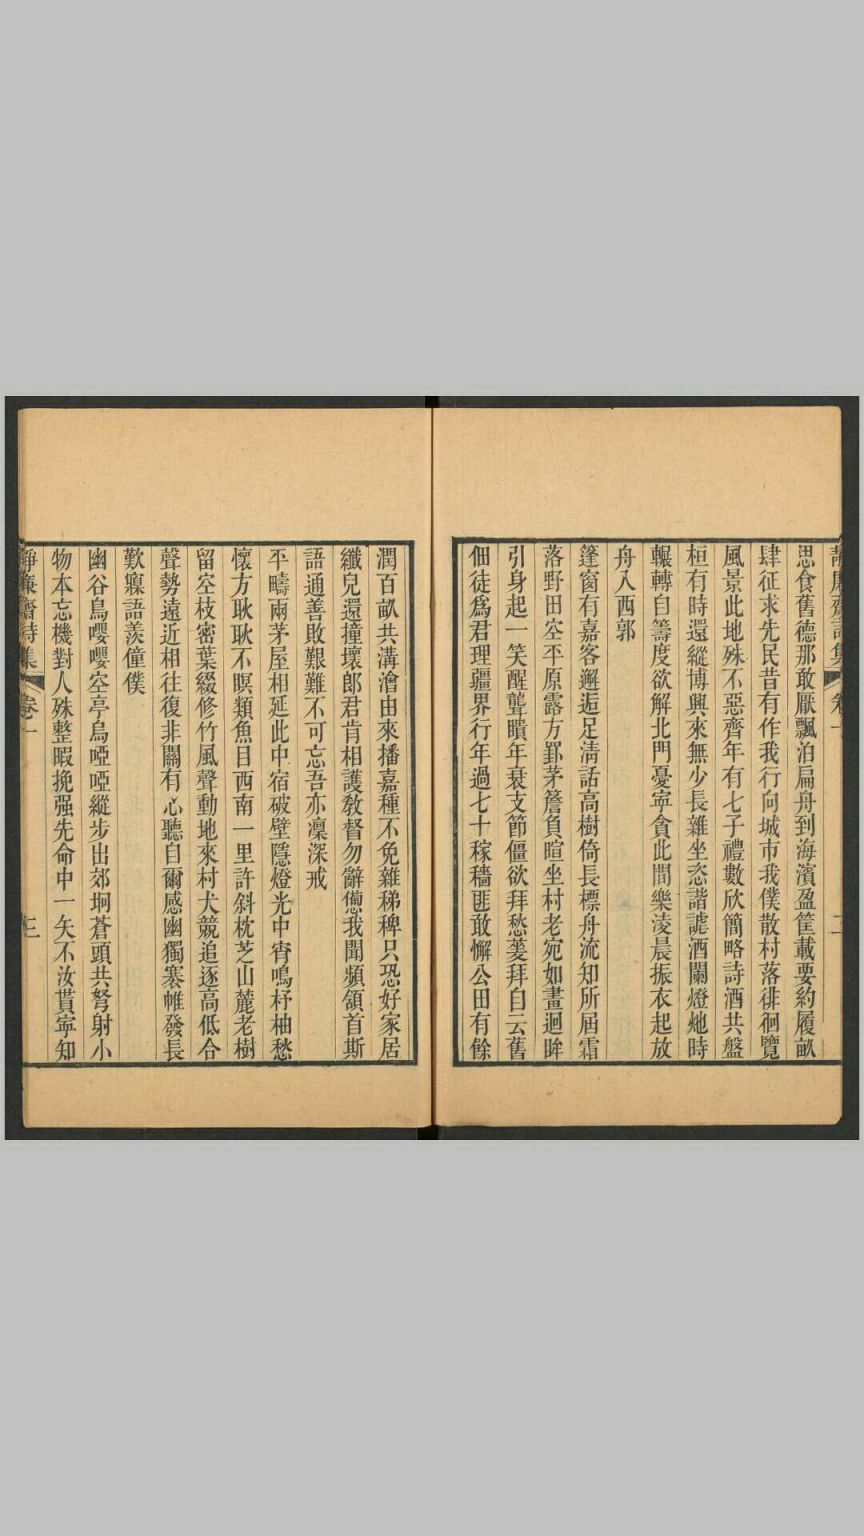 思食舊德那敢厭飄泊扁舟到海濱盈筐載要約履畝
肆征求先民昔有作我行向城市我僕散村落徘徊覽
風景此地殊不惡齊年有七子禮數欣簡略詩酒共盤
桓有時還縱博興來無少長雜坐恣諧謔酒闌燈灺時
輾轉自籌度欲解北門憂寧貪此間樂淩晨振衣起放
舟入西郭
篷窗有嘉客邂逅足清話高樹倚長標舟流知所屆霜
落野田空平原露方罫茅簷負暄坐村老宛如畫迴眸
引身起一笑醒聾聵年衰支節僵欲拜愁蔞拜自云舊
佃徒爲君理疆界行年過七十稼穡匪敢懈公田有餘
潤百畝共溝澮由來播嘉種不免雜稊稗只恐好家居
纖兒還撞壞郎君肯相護敎督勿辭憊我聞頻頷首斯
語通善敗艱難不可忘吾亦凜深戒
平疇兩茅屋相延此中宿破壁隱燈光中宵鳴杼柚愁
懷方耿耿不瞑類魚目西南一里許斜枕芝山麓老樹
留空枝密葉綴修竹風聲動地來村犬競追逐高低合
聲勢遠近相往復非關有心聽自爾感幽獨褰帷發長
歎寱語羨僮僕
幽谷鳥嚶嚶空亭烏啞啞縱步出郊坰蒼頭共弩射小
物本忘機對人殊整暇挽强先命中一矢不汝貰寧知
卷一
三